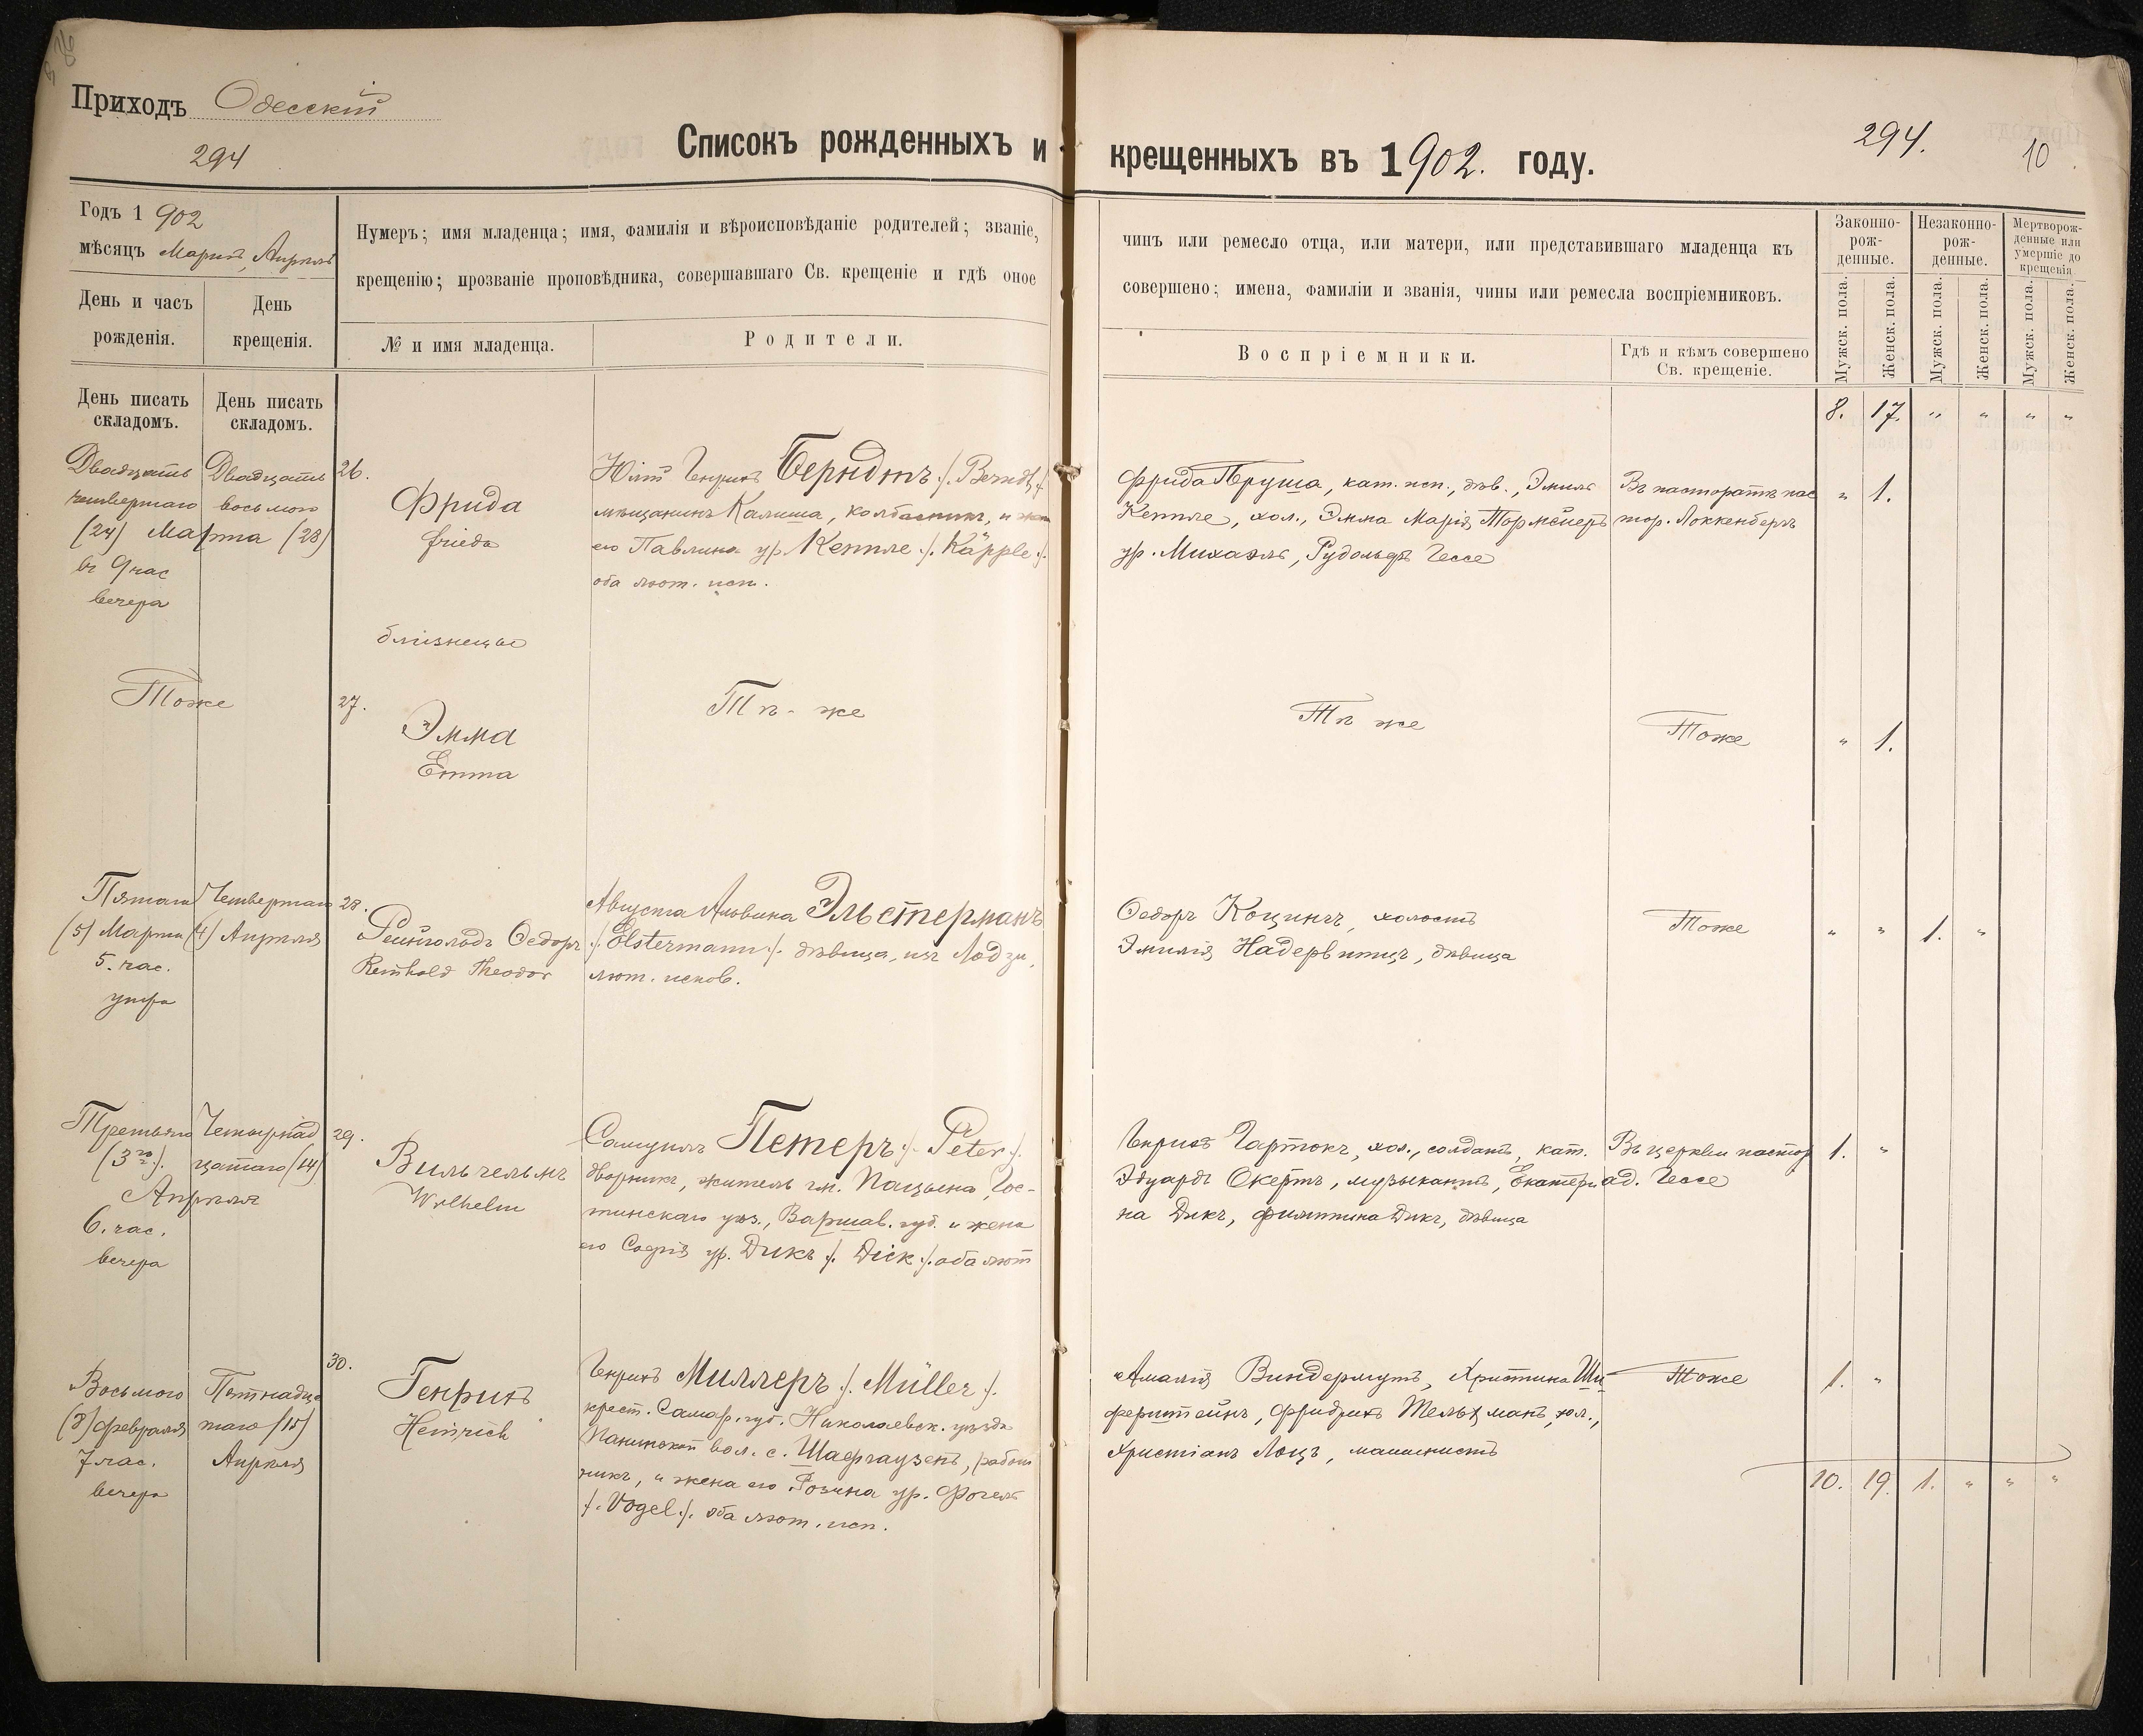 Приходъ Одесскій
294
Списокъ рожденныхъ и крещенныхъ въ 1902. году.
294.
10
Годъ 1902
мѣсяцъ Мартъ, Апрѣль
День и часъ рожденія.
День крещенія.
Нумеръ; имя младенца; имя, фамилія и вѣроисповѣданіе родителей; званіе,
чинъ или ремесло отца, или матери, или представившаго младенца къ
крещенію; прозваніе проповѣдника, совершавшаго Св. крещеніе и гдѣ оное
совершено; имена, фамиліи и званія, чины или ремесла воспріемниковъ.
№ и имя младенца.
Родители.
Воспріемники.
Гдѣ и кѣмъ совершено
Св. крещеніе.
Законно-
рож-
денные.
Незаконно-
рож-
денные.
Мертворож-
денные или
умершіе до
крещенія
Мужск. пола.
Женск. пола.
Мужск. пола.
Женск. пола.
Мужск. пола.
Женск. пола.
День писать
складомъ.
День писать
складомъ.
8. 17. " " " "
Двадцать
четвертаго
(24) Марта (28)
въ 9 час
вечера
Двадцать
восьмого
26.
Фрида
Frieda
близнецы
Юлій Генрихъ Берндтъ ./. Berndt ./.
мѣщанинъ Калиша, колбасникъ, и жена
его Павлина ур. Кеппле ./. Käpple ./.
оба лют. исп.
Фрида Пруша, кат. исп., дѣв., Эмиль
Кеппле, хол., Эмма Марія
ур. Михаэль, Рудольфъ Гессе
Въ пасторатѣ пас
тор. Локкенбергъ
" 1.
Тоже
27.
Эмма
Emma
Тѣ-же
Тѣ же
Тоже
" 1.
Пятаго
(5) Марта
5. час.
утра
Четвертаго
(4) Апрѣля
28.
Рейнгольдъ Ѳедоръ
Reinhold Theodor
Августа Альвина Эльстерманъ
./. Elstermann ./. дѣвица, изъ Лодзи,
лют. исповѣ.
Ѳедоръ Коцингъ, холостъ
Эмилія, дѣвица
Тоже
" " 1. "
Третьяго
(3го).
Апрѣля
6. час.
вечера
Четырнад
цатаго (14)
29.
Вильгельмъ
Wilhelm
Самуилъ Петеръ ./. Peter ./.
дворникъ, житель гм. Пацына, Гос-
тинскаго уѣз., Варшав. губ. и жена
его Софія ур. Дикъ ./. Dick ./. оба лют
Генрихъ, хол., солдатъ, кат.
Эдуардъ Окертъ, музыкантъ, Екатери
на Дикъ, Филиппина Дикъ, дѣвица
Въ церкви пастор
ад. Гессе
1. "
Восьмого
(8) февраля
7 час.
вечера
Пятнадца
таго (15)
Апрѣля
30.
Генрихъ
Heinrich
Генрихъ Миллеръ ./. Müller ./.
крест. Самар. губ. Николаевск. уѣзда
Панинской вол. с. Шафгаузенъ, работ
никъ, и жена его Розина ур. Фогель
./. Vogel ./. оба лют. исп.
Амалія Виндермутъ, Христина Ши-
ферштейнъ, Фридрихъ, хол.,
Христіанъ Лоцъ, машинистъ
Тоже
1. "
10. 19. 1. " " "